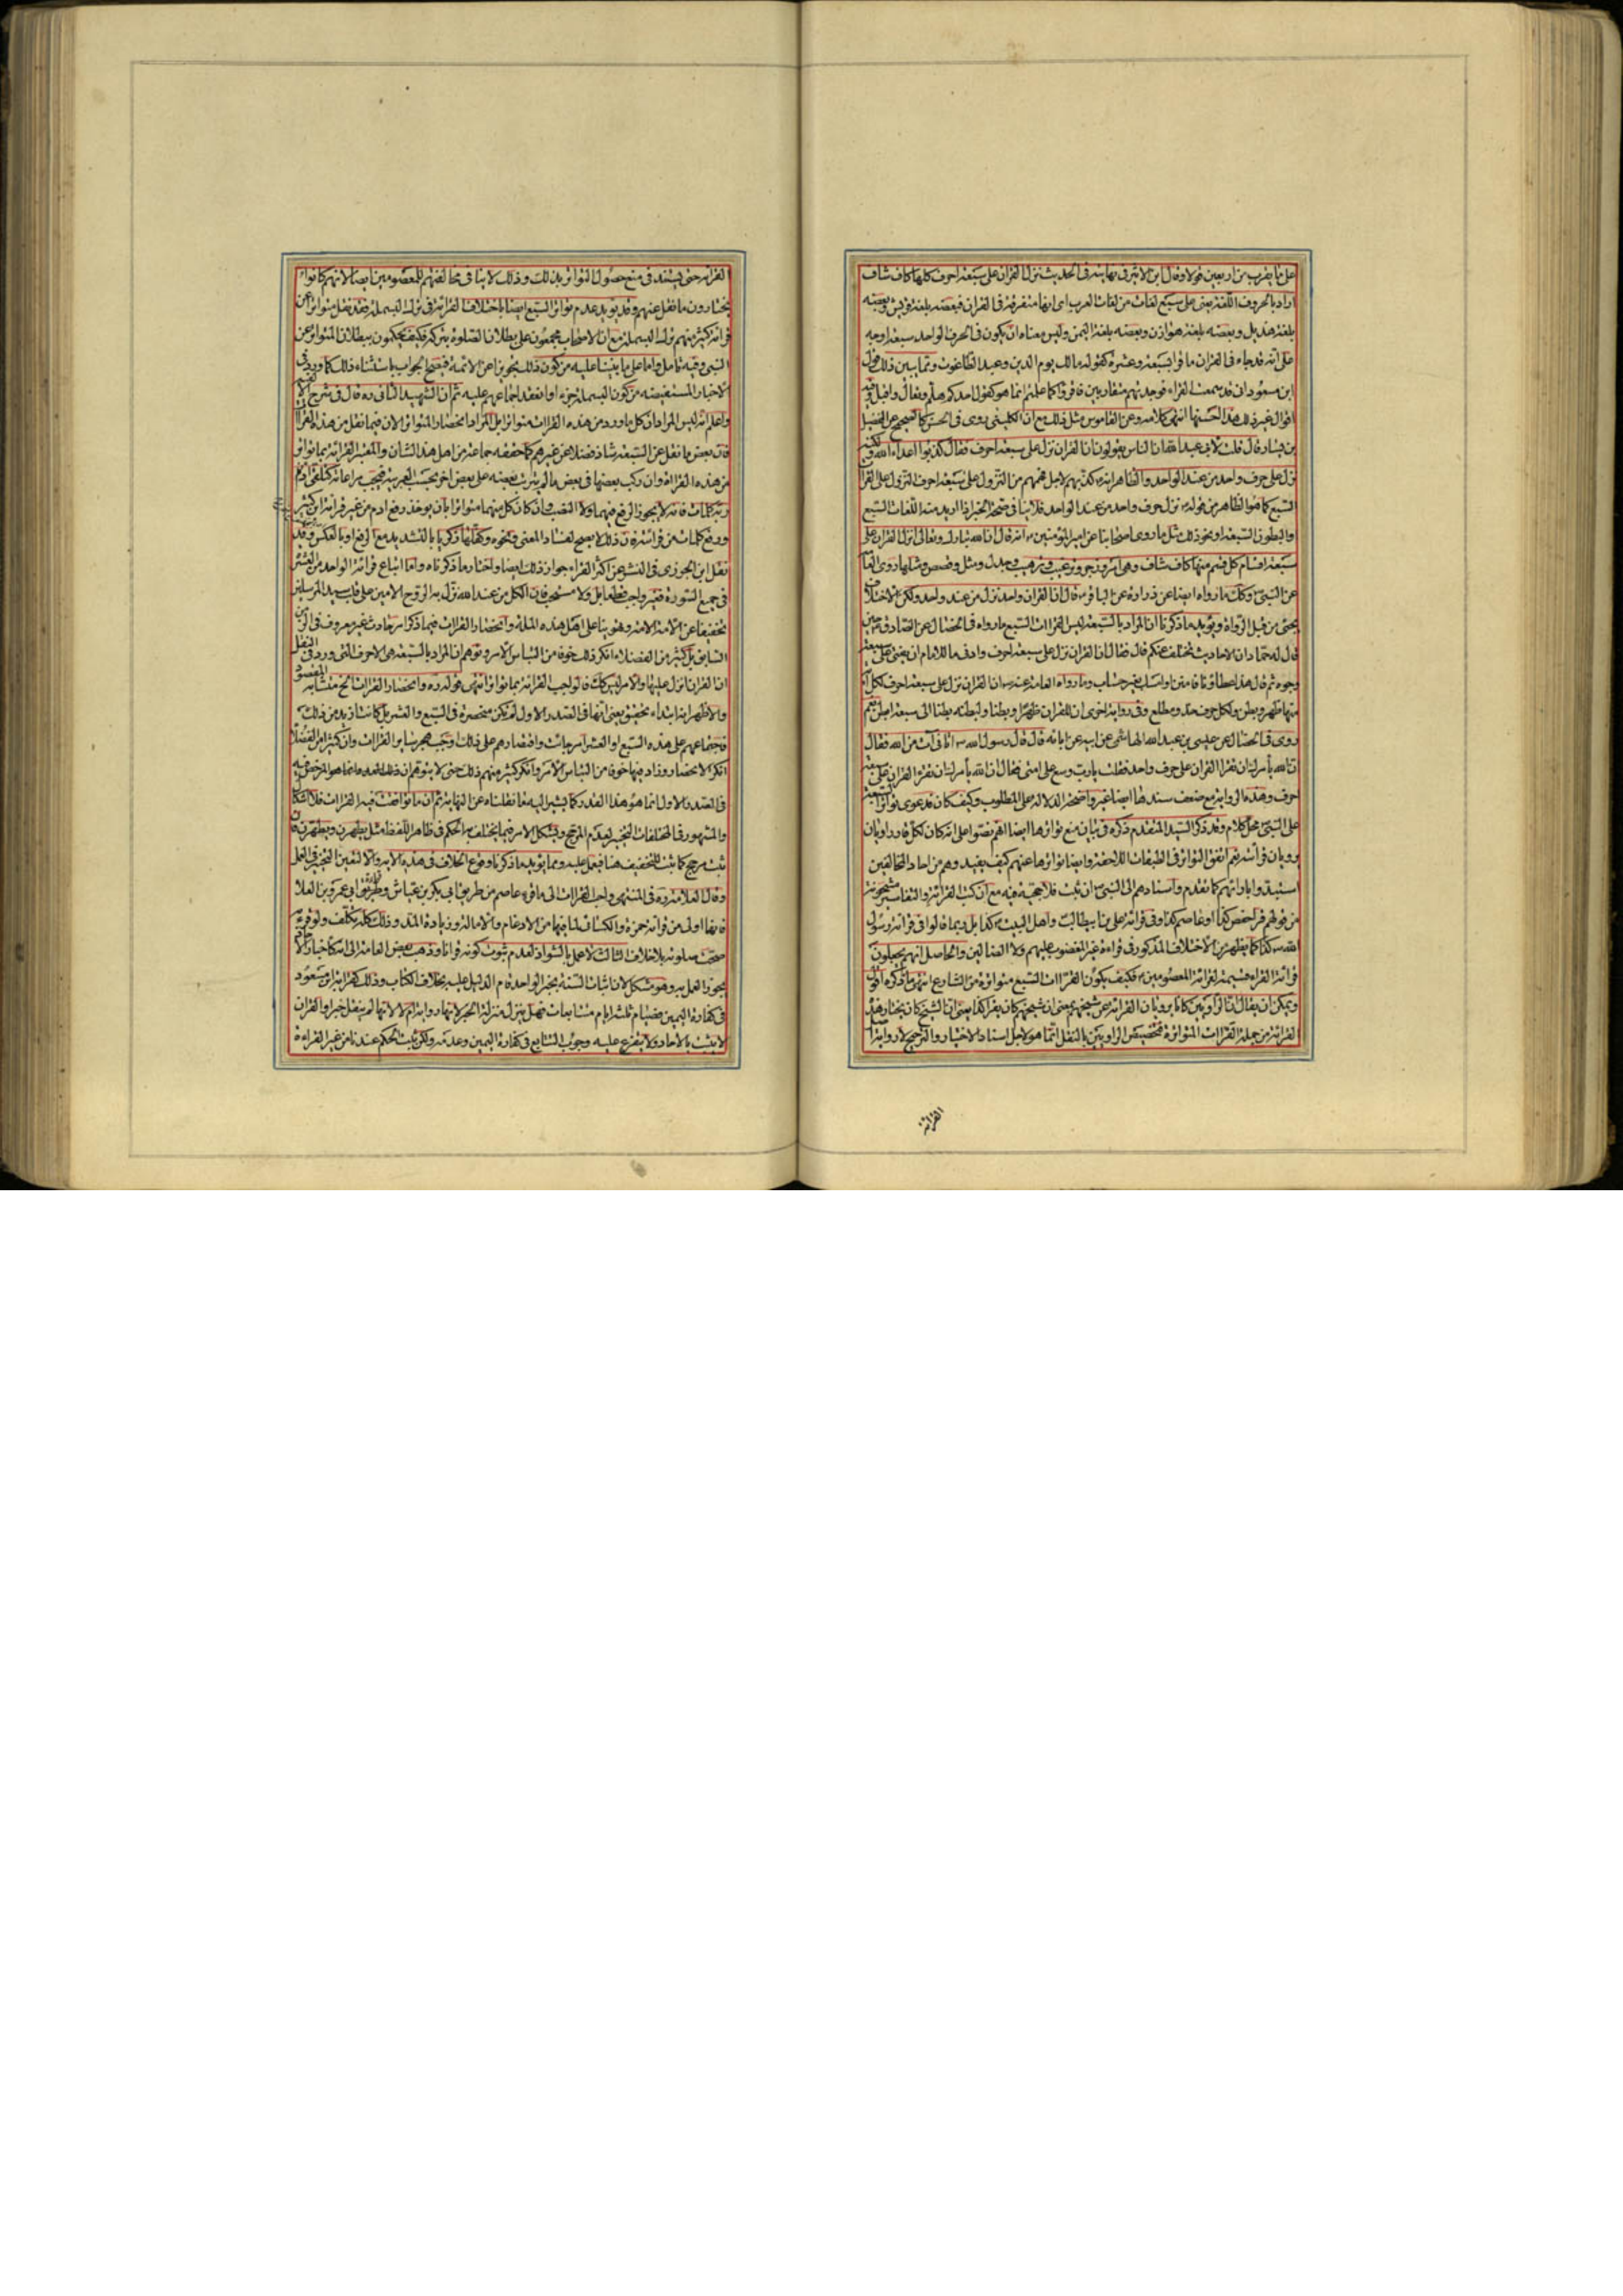 على ما يقرب من اربعين قولا وقال ابن الاثير فى نهايته فى الحديث نزل القران على سبعة احرف كلها كاف شاف
اراد بالحروف اللغة يعنى على سبع لغات من لغات العرب اى انها متفرقة فى القران فبعضه بلغة قريش وبعضه
بلغة هذيل وبعضه بلغة هوازن وبعضه بلغة اليمن وليس معناه ان يكون فى الحرف الواحد سبعة اوجه
على انه قد جاء فى القران ما قرا بسبعة وعشرة كقوله مالك يوم الدين وعبد الطاغوت ومما يبين ذلك قول
ابن مسعود انى قد سمعت القراء فوجدتهم متقاربين فاقرؤا كما علمتم انما هو كقول احدكم هلم وتعال واقبل وفيه
اقوال غير ذلك هذا احسنها انتهى كلامه وعن القاموس مثل ذلك مع ان الكلينى روى فى الحسن كالصحيح عن الفضيل
بن يسار قال قلت لابى عبد الله ان الناس يقولون ان القران نزل على سبعة احرف فقال كذبوا اعداء الله ولكنه
نزل على حرف واحد من عند الواحد والظاهر انه تكذيبهم لاجل فهمهم من النزول على سبعة احرف النزول على القرا
السبع كما هو الظاهر من قوله نزل حرف واحد من عند الواحد فلا ينافى صحة الخبر اذا اريد منه اللغات السبع
والبطون السبعة او نحو ذلك مثل ما روى اصحابنا عن امير المؤمنين انه قال ان الله تبارك وتعالى انزل القران على
سبعة اقسام كل قسم منها كاف شاف وهى امر وزجر وترغيب وترهيب وجدل ومثل وقصص ومثلها روى العا
عن النبى وكك ما رواه ايضا عن زرارة عن الباقر قال ان القران واحد نزل من عند واحد ولكن الاختلاف
يجئ من قبل الرواة ويؤيد ما ذكرنا ان المراد بالسبعة ليس القراات السبع ما رواه فى الخصال عن الصادق حين
قال له حماد ان الاحاديث تختلف عنكم قال فقال ان القران نزل على سبعة احرف وادنى ما للامام ان يفتى على سبعة
وجوه ثم قال هذا عطاؤنا فامنن او امسك بغير حساب وما رواه العامة عنه ان القران نزل على سبعة احرف لكل اية
منها ظهر وبطن ولكل حرف حد ومطلع وفى رواية اخرى ان للقران ظهرا وبطنا ولبطنه بطنا الى سبعة ابطن نعم
روى فى الخصال عن عيسى بن عبد الله الهاشمى عن ابيه عن ابائه قال قال رسول الله اتانى آت من الله فقال
ان الله يأمرك ان تقرا القران على حرف واحد فقلت يا رب وسع على امتى فقال ان الله يأمرك ان تقرء القران على سبعة
احرف وهذه الرواية مع ضعف سندها ايضا غير واضحة الدلالة على المطلوب وكيف كان فدعوى تواتر السبعة
على النبى محل كلام وقد ذكر السيد المتقدم ذكره فى بيان منع تواترها ايضا انهم نصوا على انه كان لكل قار راويان
يرويان قرائته نعم اتفق التواتر فى الطبقات اللاحقة وايضا تواترها عنهم كيف يفيد وهم من احاد المخالفين
استبدوا بارائهم كما تقدم واسنادهم الى النبى ان ثبت فلا حجية فيه مع ان كتب القرائة والتفاسير مشحونة
من قولهم قرا حفص كذا او عاصم كذا وفى قرائة على بن ابيطالب واهل البيت كذا بل ربما قالوا فى قرائة رسول
الله كذا كما يظهر من الاختلاف المذكور فى قراءة غير المغضوب عليهم ولا الضالين والحاصل انهم يجعلون
قرائة القراء قسيمة لقرائة المعصومين فكيف يكون القراات السبع متواترة من الشارع انتهى ما ذكره اقول
ويمكن ان يقال ان الراويين كانا يرويان القرائة عن شيخهم بمعنى ان شيخهم كان يقرا كذا بمعنى ان الشيخ كان يختار هذه
القرائة من جملة القراات المتواترة فتخصيص الراويين بالنقل انما هو لاجل اسناد الاختيار والترجيح لا رواية اصل
القرائة
القرائة حتى يستند فى منع حصول التواتر بذلك وذلك لا ينافى مخالفتهم للمعصومين ايضا لانهم كانوا
يختارون ما نقل عنهم وقد يؤيد عدم تواتر السبع ايضا باختلاف القرائة فى ترك البسملة فقد نقل متواترا عن
قرائة كثير منهم ترك البسملة مع ان الاصحاب مجمعون على بطلان الصلوة بتركه فكيف يحكمون ببطلان المتواتر عن
النبى وفيه تامل واما على ما بنينا عليه من كون ذلك تجويزا عن الائمة فيصح الجواب باستثناء ذلك كما ورد فى
الاخبار المستفيضة من كون البسملة جزء او انعقد اجماعهم عليه ثم ان الشهيد الثانى ره قال فى شرح الالفية
واعلم انه ليس المراد ان كل ما ورد من هذه القراات متواترا بل المراد انحصار المتواتر الان فيما نقل من هذه القرا
فان بعض ما نقل عن السبعة شاذ فضلا عن غيرهم كما حققه جماعة من اهل هذا الشان والمعتبر القرائة بما تواتر
من هذه القراءة وان ركب بعضها فى بعض ما لم يترتب بعضه على بعض اخر بحسب العربية فيجب مراعاته كتلقى ادم
من ربه كلمات فانه لا يجوز الرفع فيهما ولا النصب وان كان كل منهما متواترا بان يؤخذ رفع ادم من غير قرائة ابن كثير
ورفع كلمات من قرائته فان ذلك لا يصح لفساد المعنى ونحوه وكفلها زكريا بالتشديد مع الرفع او بالعكس وقد
نقل ابن الجوزى فى النشر عن اكثر القراء جواز ذلك ايضا واختار ما ذكرناه واما اتباع قرائة الواحد من العشر
فى جميع السورة فغير واجب قطعا بل ولا مستحب فان الكل من عند الله نزل به الروح الامين على قلب سيد المرسلين
تخفيفا عن الامة وتهوينا على اهل هذه الملة وانحصار القراات فيما ذكر امر حادث غير معروف فى الزمن
السابق بل كثير من الفضلاء انكر ذلك خوفا من التباس الامر وتوهم ان المراد بالسبعة هى الاحرف التى ورد فى النقل
ان القران انزل عليها والامر ليس كك فالواجب القرائة بما تواتر انتهى قوله ره وانحصار القراات الخ
والاظهر انه ابتداء تحقيق يعنى انها فى الصدر الاول لم تكن منحصرة فى السبع والعشر بل كانت ازيد من ذلك
فاجتماعهم على هذه السبع او العشر امر حادث واقتصارهم على ذلك اوجب هجر سائر القراات وان كثيرا من الفضلا
انكر الانحصار وزاد فيها خوفا من التباس الامر وانكر كثير منهم ذلك حتى لا يتوهم ان ذلك العدد انما هو المرخص فيه
فى الصدر الاول انما هو هذا القدر كما يشير اليه ما نقلناه عن النهاية ثم ان ما توافقت فيه القراات فلا اشكال
والمشهور فى المختلفات التخيير لعدم المرجح ويشكل الامر فيما يختلف به الحكم فى ظاهر اللفظ مثل يطهرن ويطهرن فان
ثبت مرجح كما ثبت للتخفيف هنا فيعمل عليه ومما يؤيد ما ذكرنا وقوع الخلاف فى هذه الاية والا لتعين التخيير فى العمل
وقال العلامة ره فى المنتهى واحب القراات الى ما قرء عاصم من طريق ابى بكر بن عياش وطريق ابى عمرو بن العلا
فانها اولى من قرائة حمزة والكسائى لما فيها من الادغام والامالة وزيادة المد وذلك كله تكلف ولو قرء به
صحت صلوته بلا خلاف الثالث لا عمل بالشواذ لعدم ثبوت كونه قرانا وذهب بعض العامة الى انه كاخبار الاحاد
يجوز العمل به وهو مشكل لان اثبات السنة بخبر الواحد قام الدليل عليه بخلاف الكتاب وذلك كقراءة ابن مسعود
فى كفارة اليمين فصيام ثلثة ايام متتابعات فهل ينزل منزلة الخبر لانها رواية ام لا لانها لم ينقل خبرا والقران
لا يثبت بالاحاد ولا يتفرع عليه وجوب التتابع فى كفارة اليمين وعدمه ولكن ثبت الحكم عندنا من غير القراءة